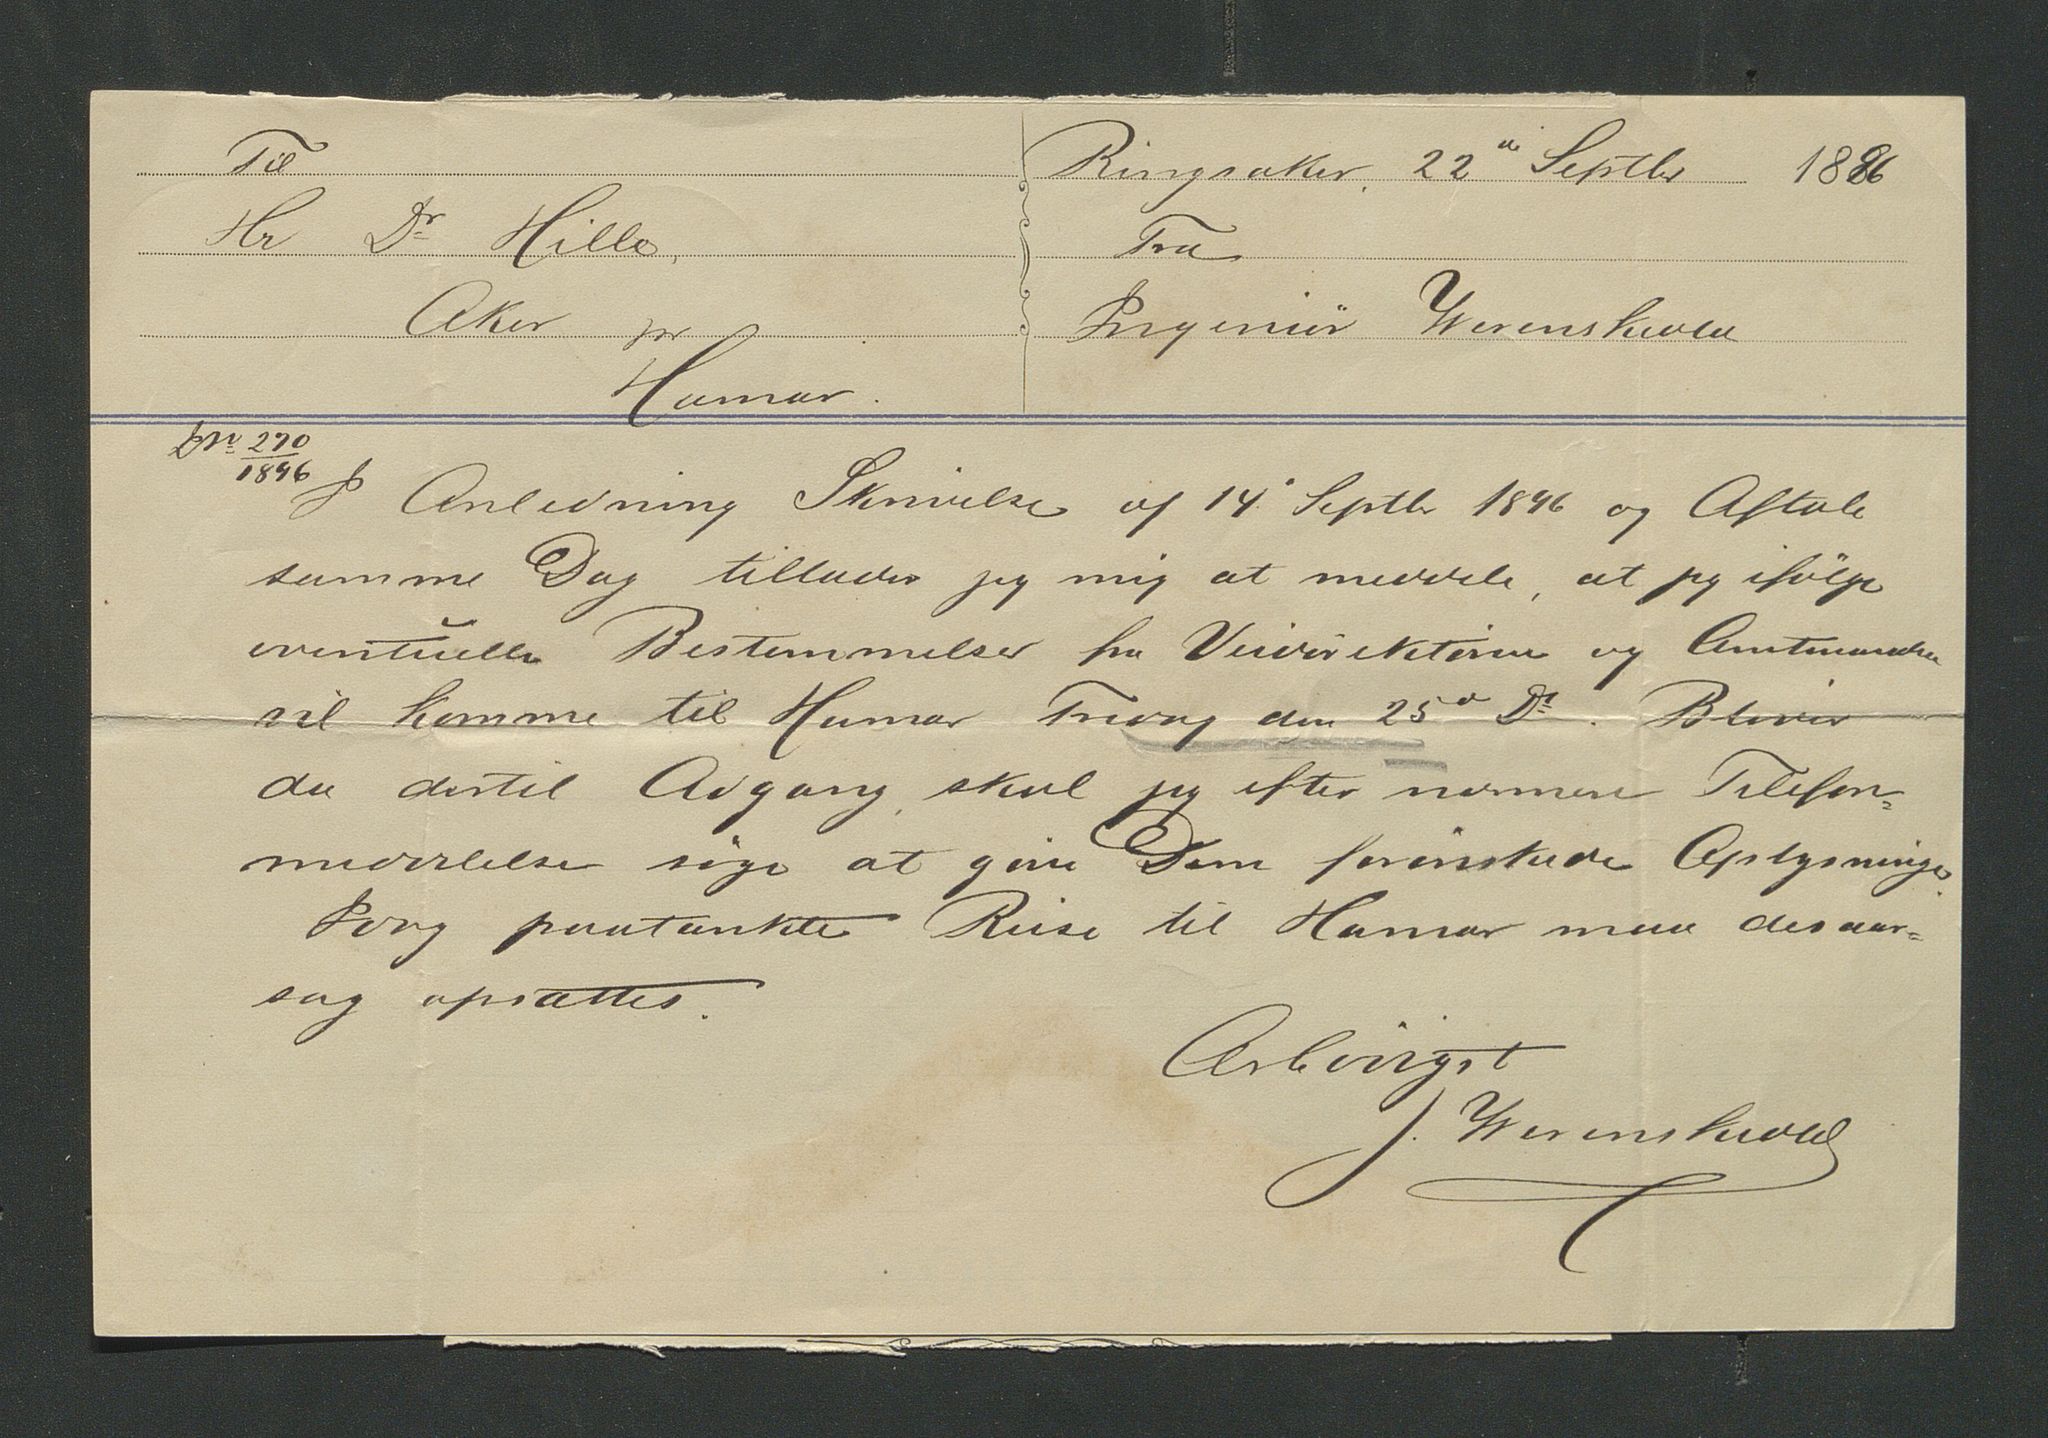 Til
Hr Dr Hille,
Aker pr
Hamar.
Ringsaker, 22d Septbr 1896
Fra
Ingeniör Werenskiold
JNr 270/1896
I Anledning Skrivelse af 14. Septbr 1896 og Aftale
samme Dag tillader jeg mig at meddele, at jeg ifölge
eventuelle Bestemmelser fra Veidirektören og Amtmanden
vil komme til Hamar Fredag den 25d Ds. Bliver
da dertil Adgang, skal jeg efter nærmere Telefon=
meddelelse söge at give Dem forönskede Oplysninger.
Idag paatænkte Reise til Hamar maa desaar=
sag opsættes.
Ærbödigst
J. Werenskiold